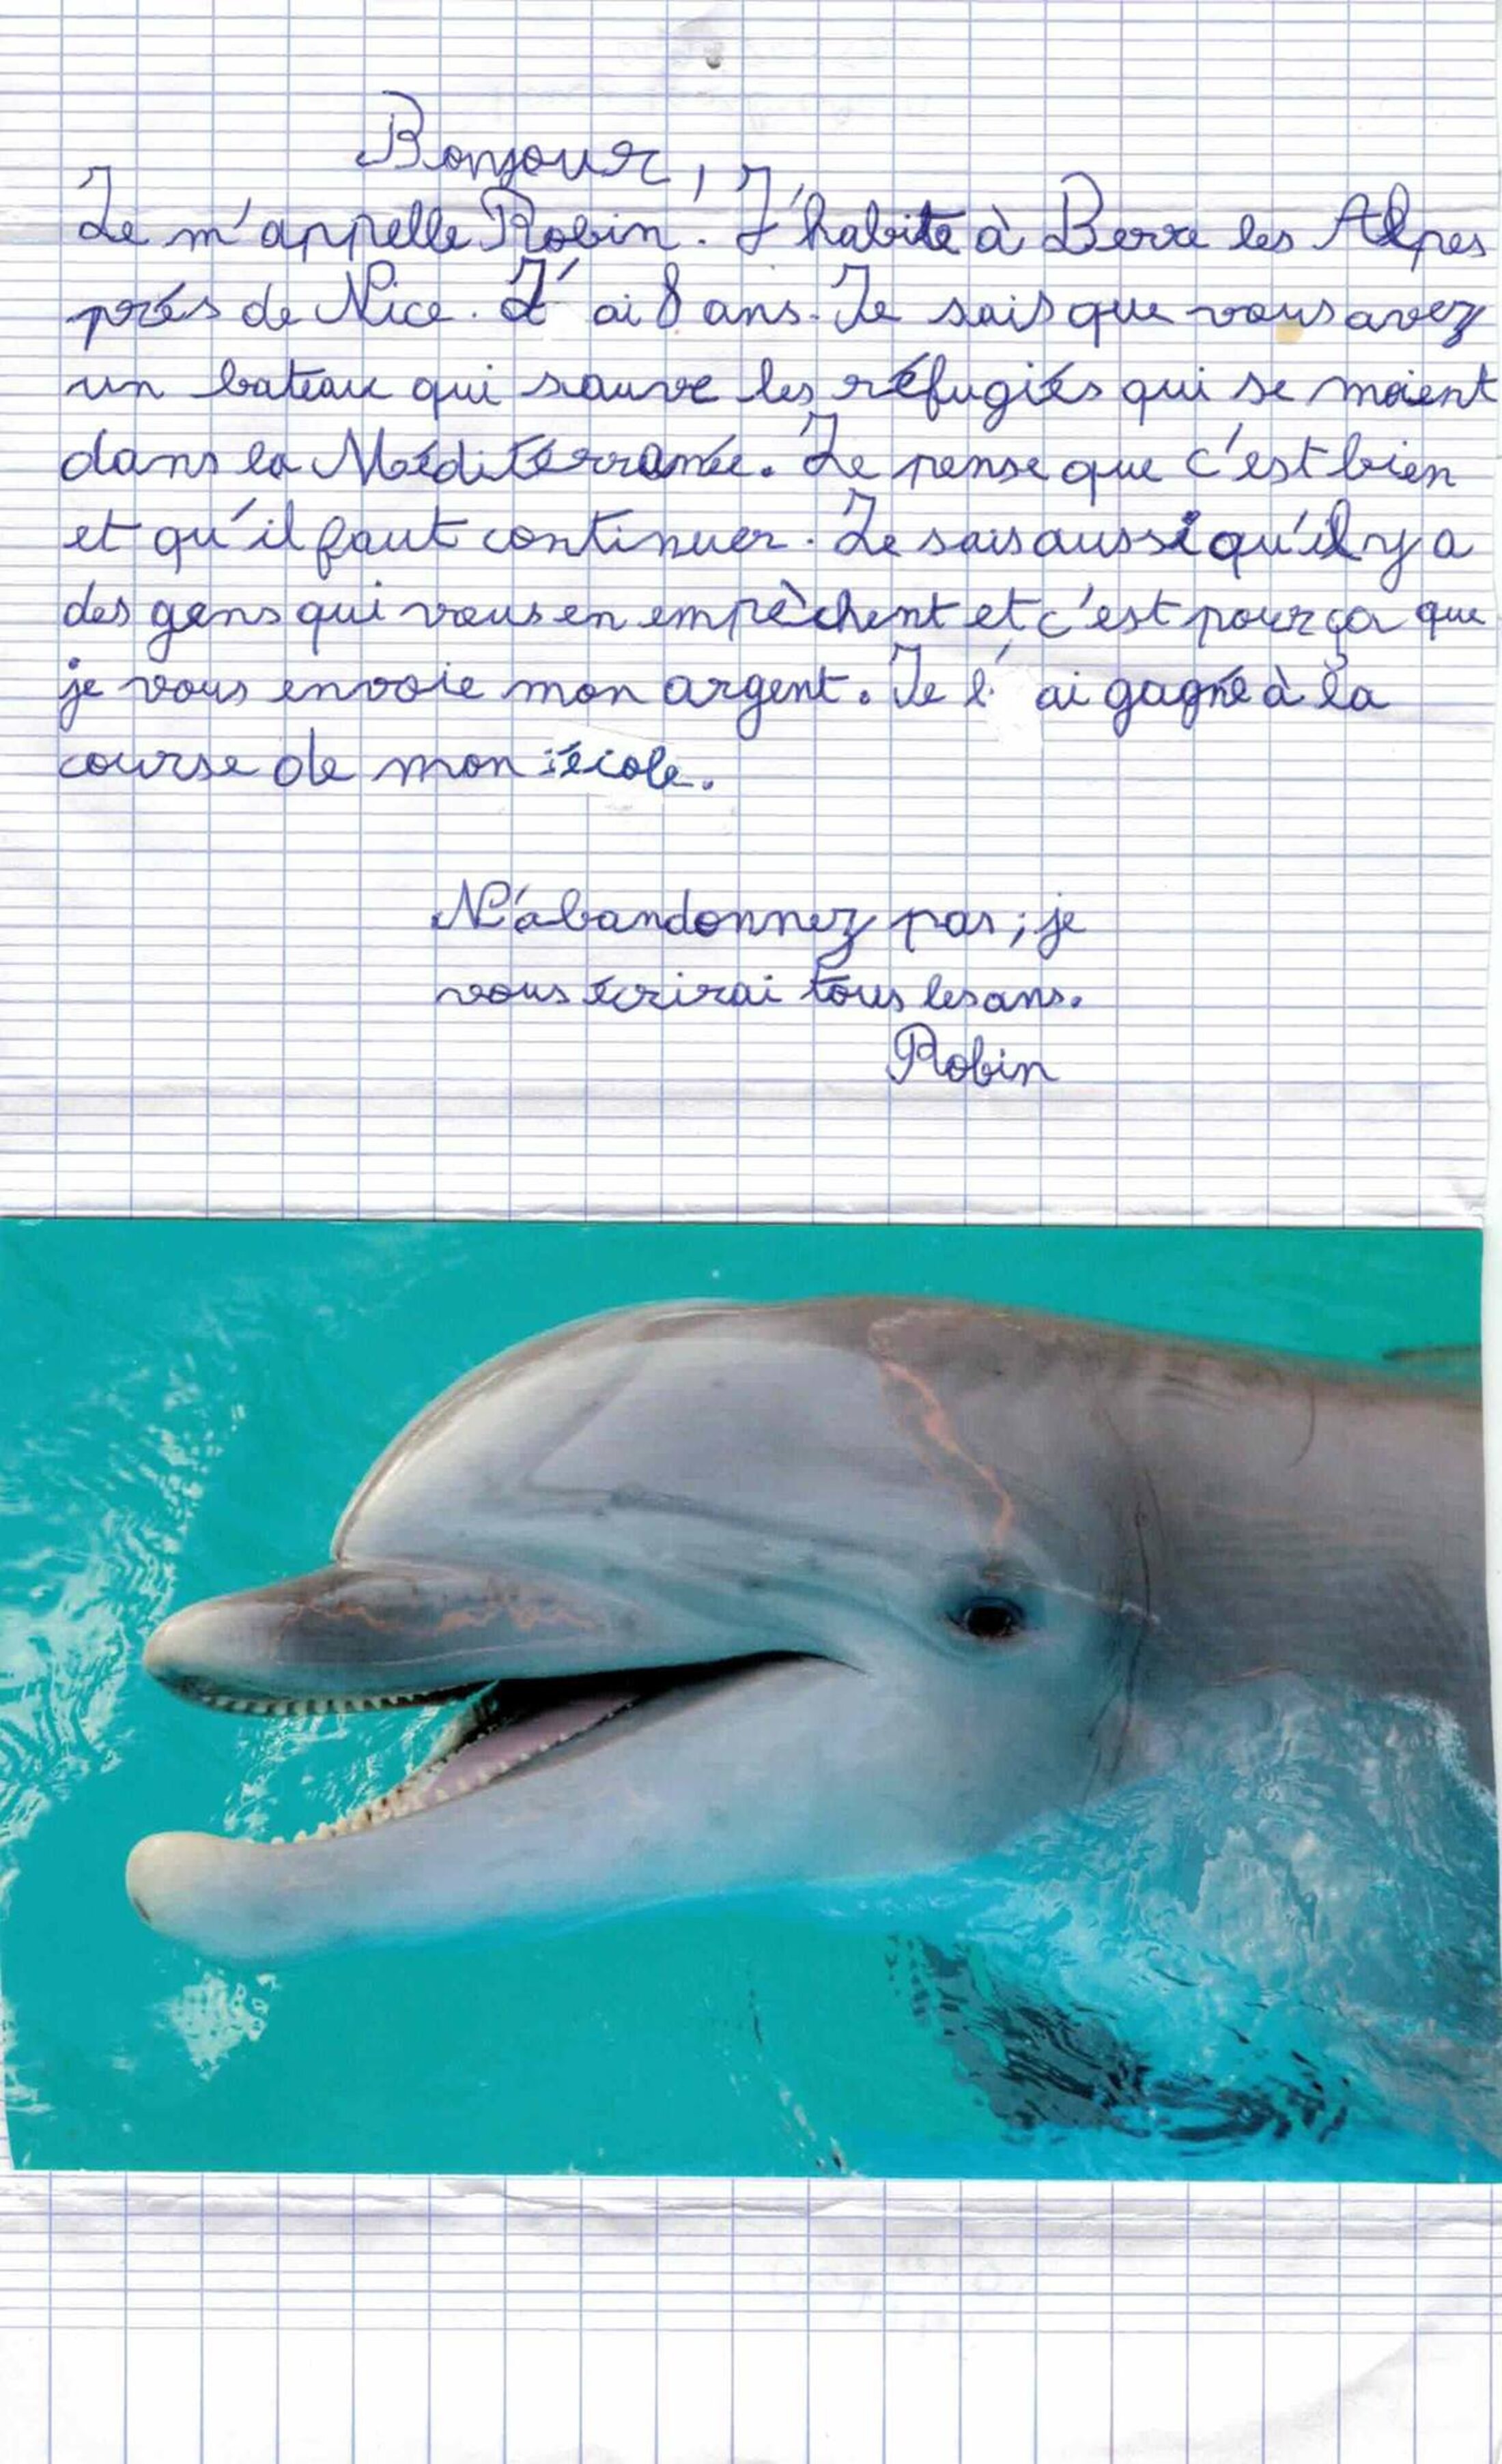 Bonjour,
Je m'appelle Robin. J'habite à Berre les Alpes
prés de Nice. J'ai 8 ans. Je sais que vous avez
un bateau qui sauve les réfugiés qui se noient
dans la Méditérranée. Je pense que c'est bien
et qu'il faut continuer. Je sais aussi qu'il y a
des gens qui vous en empèchent et c'est pour ça que
je vous envoie mon argent. Je l'ai gagné à la
course de mon école.
N'abandonnez pas ; je
vous écrirai tous les ans.
Robin